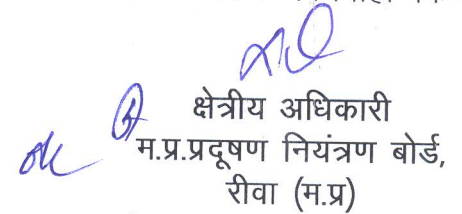 क्षेत्रीय अधिकारी
म.प्र.प्रदूषण नियंत्रण बोर्ड,
रीवा (म.प्र)